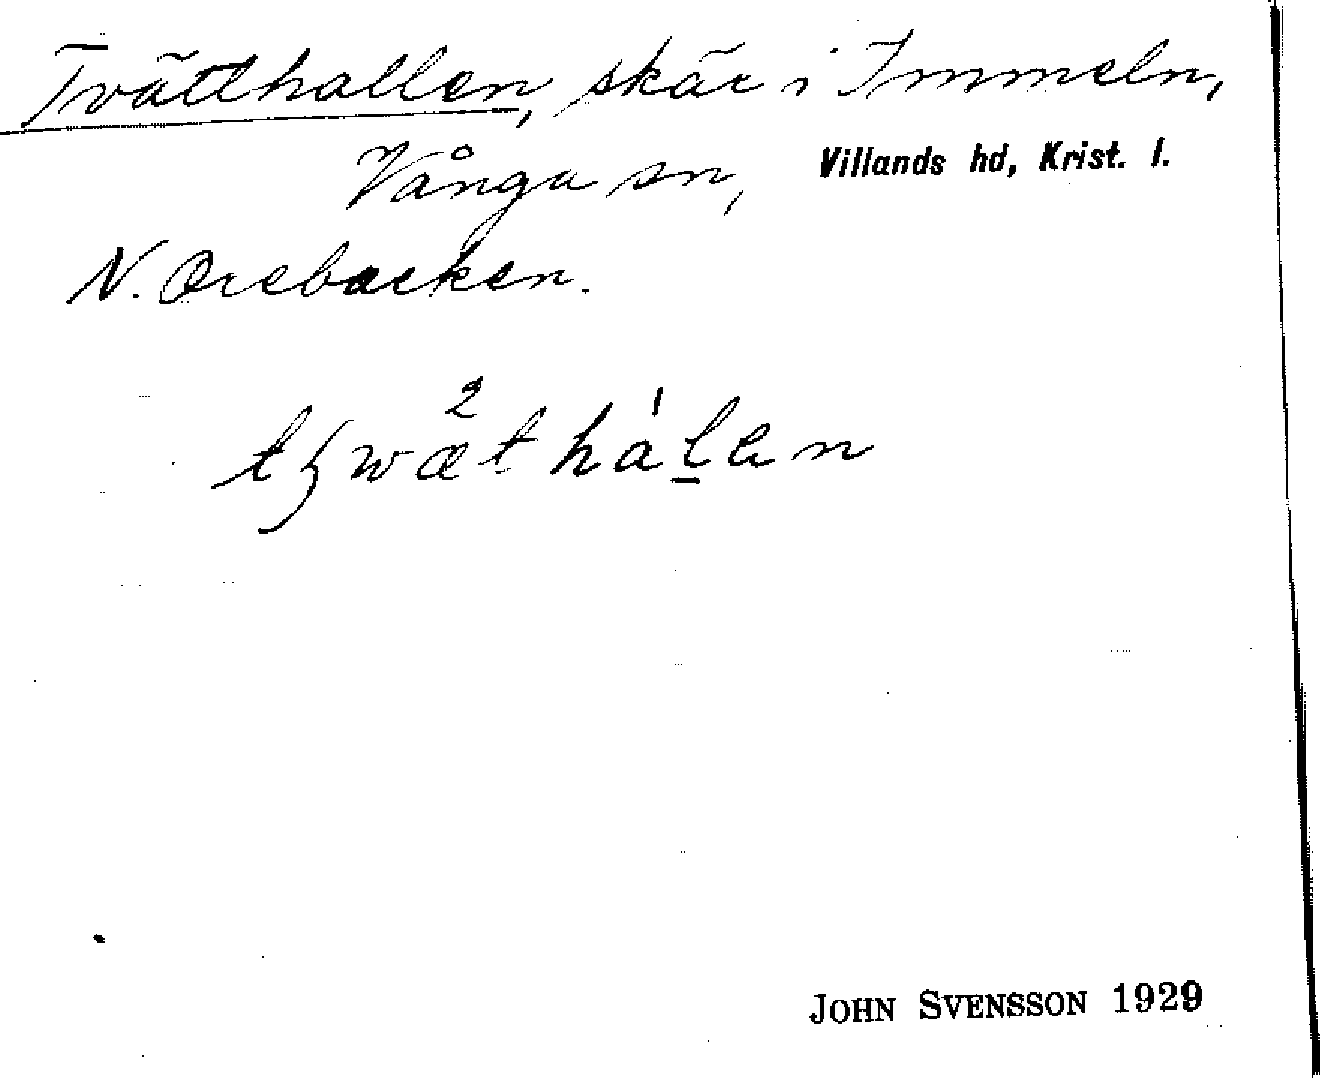 Tvätthallen, skär i Immeln,
Vånga sn, Villands hd, Krist. l.
N. Orebacken.
JOHN SVENSSON 1929